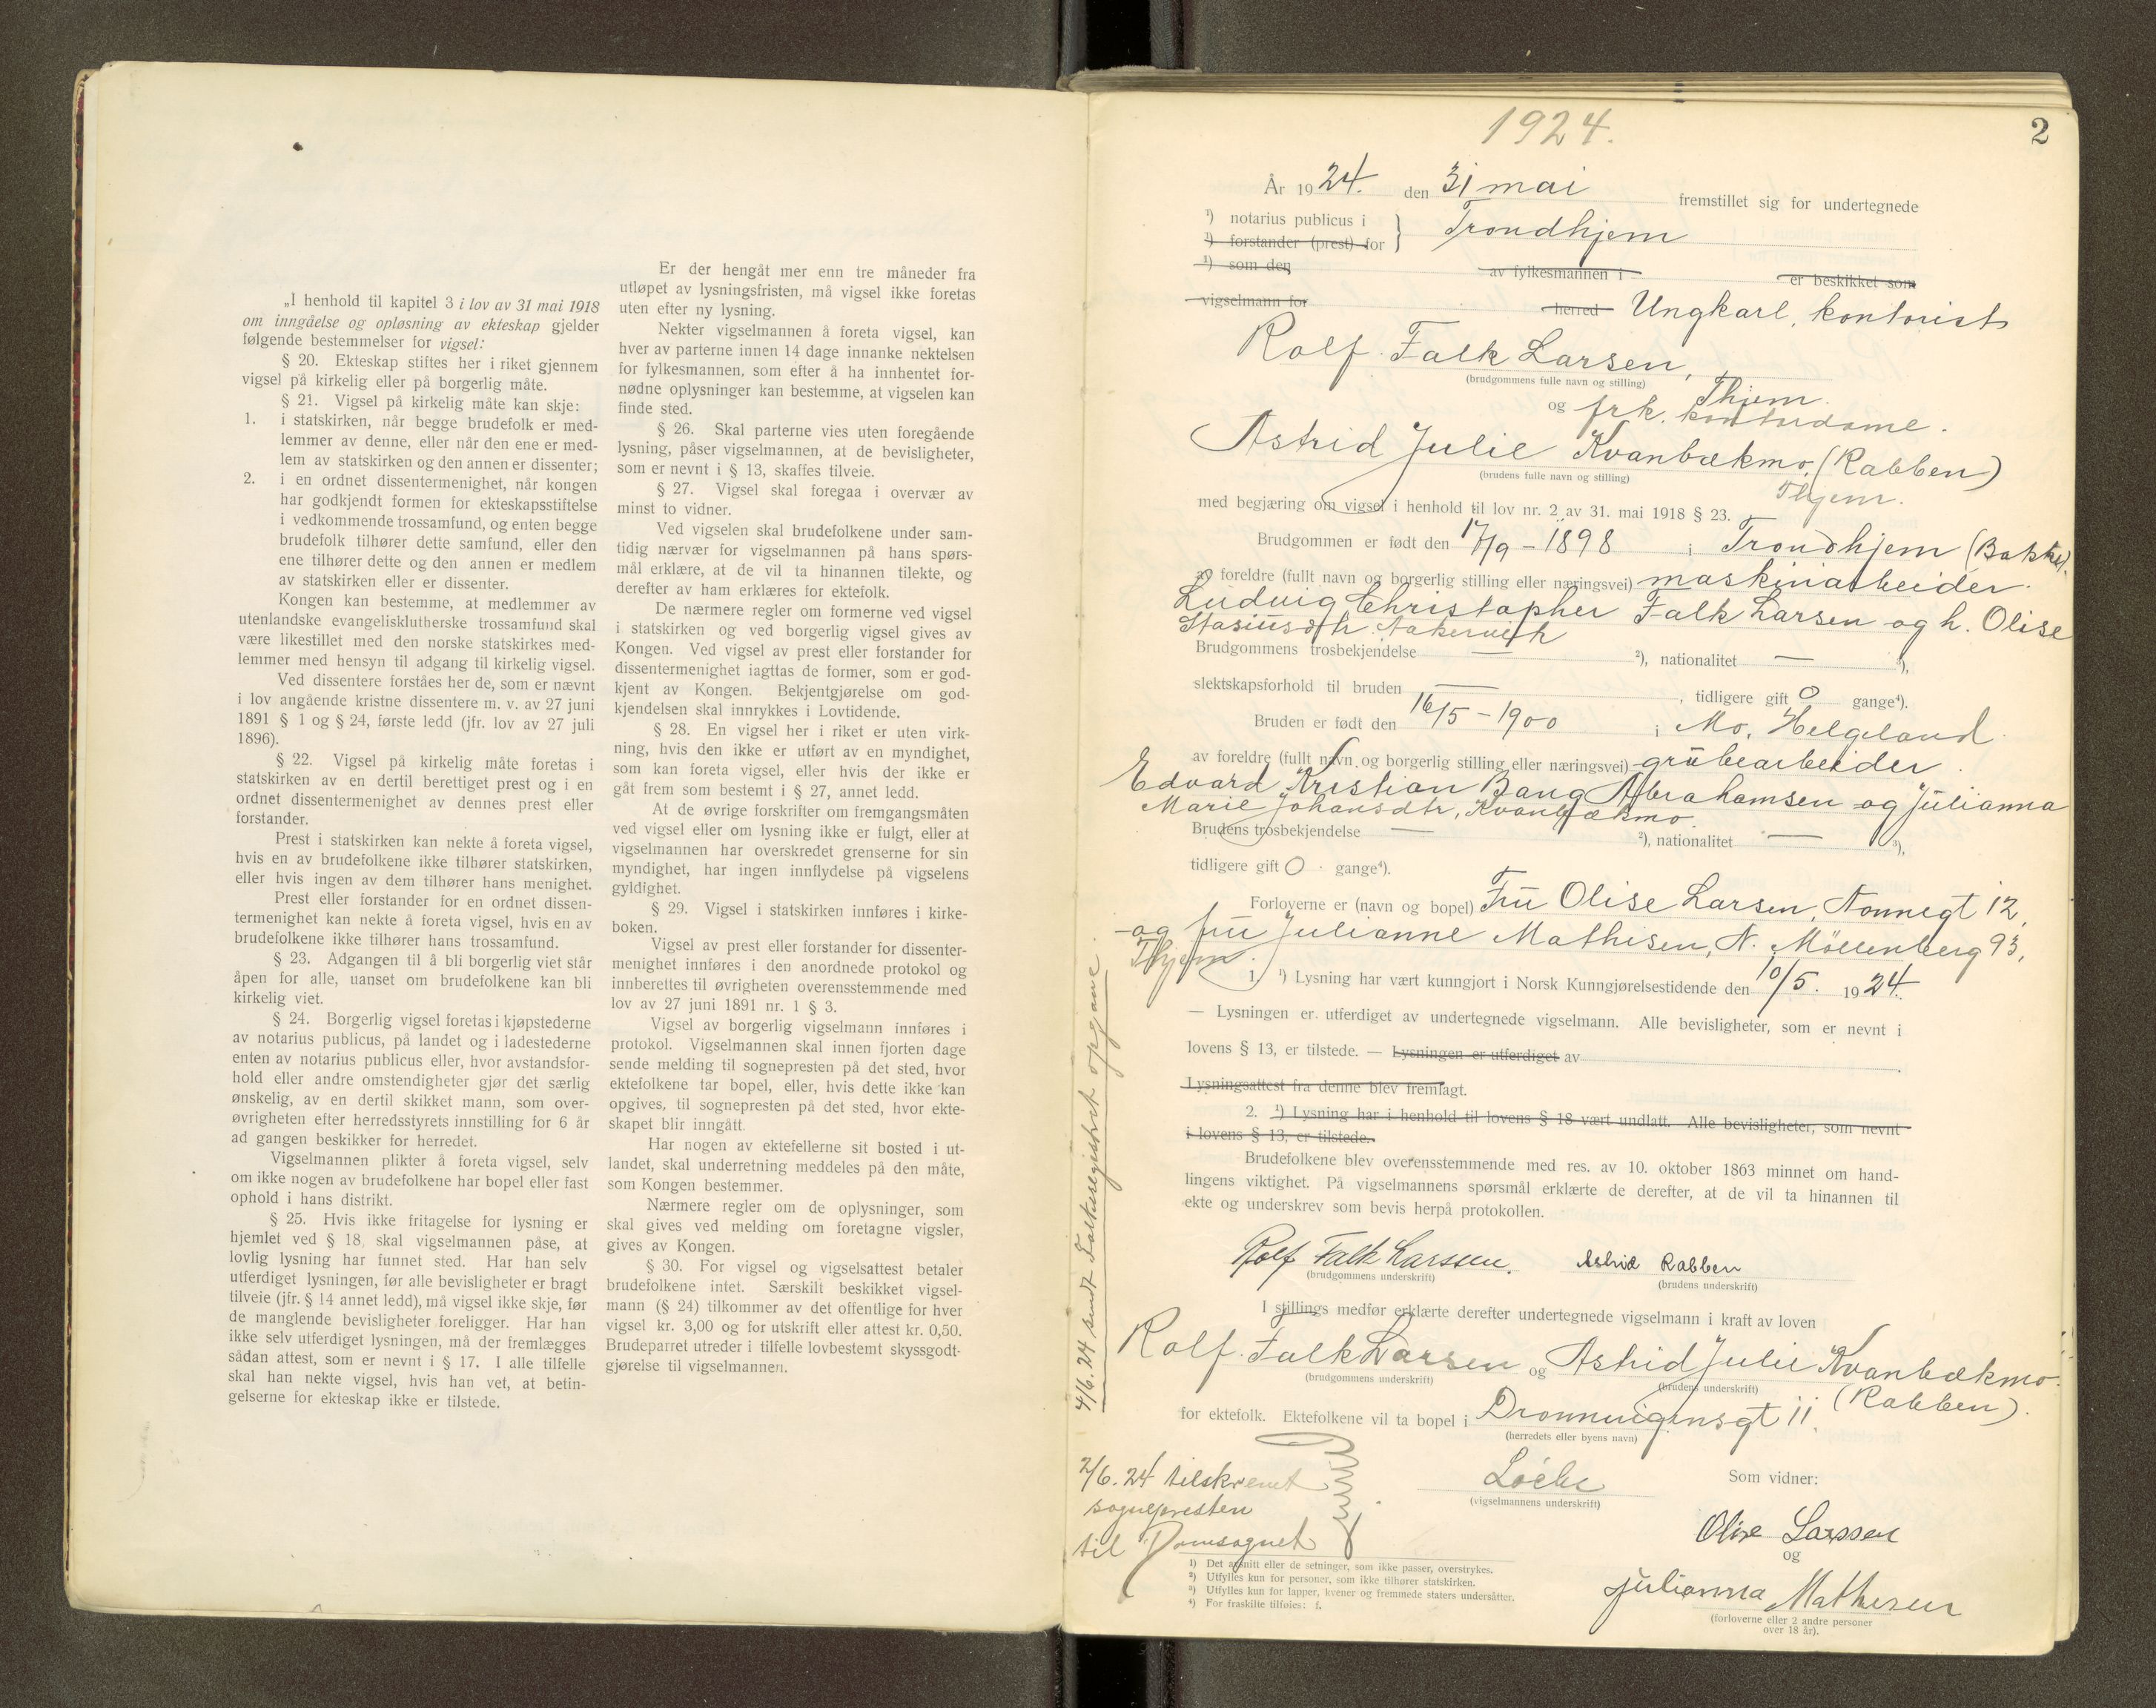 „I henhold til kapitel 3 i lov av 31 mai 1918
om inngåelse og opløsning av ekteskap gjelder
følgende bestemmelser for vigsel:
§ 20. Ekteskap stiftes her i riket gjennem
vigsel på kirkelig eller på borgerlig måte.
§ 21. Vigsel på kirkelig måte kan skje:
1. i statskirken, når begge brudefolk er med-
lemmer av denne, eller når den ene er med-
lem av statskirken og den annen er dissenter;
2. i en ordnet dissentermenighet, når kongen
har godkjendt formen for ekteskapsstiftelse
i vedkommende trossamfund, og enten begge
brudefolk tilhører dette samfund, eller den
ene tilhører dette og den annen er medlem
av statskirken eller er dissenter.
Kongen kan bestemme, at medlemmer av
utenlandske evangelisklutherske trossamfund skal
være likestillet med den norske statskirkes med-
lemmer med hensyn til adgang til kirkelig vigsel.
Ved dissentere forståes her de, som er nævnt
i lov angående kristne dissentere m. v. av 27 juni
1891 § 1 og § 24, første ledd (jfr. lov av 27 juli
1896).
§ 22. Vigsel på kirkelig måte foretas i
statskirken av en dertil berettiget prest og i en
ordnet dissentermenighet av dennes prest eller
forstander.
Prest i statskirken kan nekte å foreta vigsel,
hvis en av brudefolkene ikke tilhører statskirken,
eller hvis ingen av dem tilhører hans menighet.
Prest eller forstander for en ordnet dissen-
termenighet kan nekte å foreta vigsel, hvis en av
brudefolkene ikke tilhører hans trossamfund.
§ 23. Adgangen til å bli borgerlig viet står
åpen for alle, uanset om brudefolkene kan bli
kirkelig viet.
§ 24. Borgerlig vigsel foretas i kjøpstederne
av notarius publicus, på landet og i ladestederne
enten av notarius publicus eller, hvor avstandsfor-
hold eller andre omstendigheter gjør det særlig
ønskelig, av en dertil skikket mann, som over-
øvrigheten efter herredsstyrets innstilling for 6 år
ad gangen beskikker for herredet.
Vigselmannen plikter å foreta vigsel, selv
om ikke nogen av brudefolkene har bopel eller fast
ophold i hans distrikt.
§ 25. Hvis ikke fritagelse for lysning er
hjemlet ved § 18, skal vigselmannen påse, at
lovlig lysning har funnet sted. Har han selv
utferdiget lysningen, før alle bevisligheter er bragt
tilveie (jfr. § 14 annet ledd), må vigsel ikke skje, før
de manglende bevisligheter foreligger. Har han
ikke selv utferdiget lysningen, må der fremlægges
sådan attest, som er nevnt i § 17. I alle tilfelle
skal han nekte vigsel, hvis han vet, at betin-
gelserne for ekteskap ikke er tilstede.
Er der hengåt mer enn tre måneder fra
utløpet av lysningsfristen, må vigsel ikke foretas
uten efter ny lysning.
Nekter vigselmannen å foreta vigsel, kan
hver av parterne innen 14 dage innanke nektelsen
for fylkesmannen, som efter å ha innhentet for-
nødne oplysninger kan bestemme, at vigselen kan
finde sted.
§ 26. Skal parterne vies uten foregående
lysning, påser vigselmannen, at de bevisligheter,
som er nevnt i § 13, skaffes tilveie.
§ 27. Vigsel skal foregaa i overvær av
minst to vidner.
Ved vigselen skal brudefolkene under sam-
tidig nærvær for vigselmannen på hans spørs-
mål erklære, at de vil ta hinannen tilekte, og
derefter av ham erklæres for ektefolk.
De nærmere regler om formerne ved vigsel
i statskirken og ved borgerlig vigsel gives av
Kongen. Ved vigsel av prest eller forstander for
dissentermenighet iagttas de former, som er god-
kjent av Kongen. Bekjentgjørelse om god-
kjendelsen skal innrykkes i Lovtidende.
§ 28. En vigsel her i riket er uten virk-
ning, hvis den ikke er utført av en myndighet,
som kan foreta vigsel, eller hvis der ikke er
gåt frem som bestemt i § 27, annet ledd.
At de øvrige forskrifter om fremgangsmåten
ved vigsel eller om lysning ikke er fulgt, eller at
vigselmannen har overskredet grenserne for sin
myndighet, har ingen innflydelse på vigselens
gyldighet.
§ 29. Vigsel i statskirken innføres i kirke-
boken.
Vigsel av prest eller forstander for dissenter-
menighet innføres i den anordnede protokol og
innberettes til øvrigheten overensstemmende med
lov av 27 juni 1891 nr. 1 § 3.
Vigsel av borgerlig vigselmann innføres i
protokol. Vigselmannen skal innen fjorten dage
sende melding til sognepresten på det sted, hvor
ektefolkene tar bopel, eller, hvis dette ikke kan
opgives, til sognepresten på det sted, hvor ekte-
skapet blir inngått.
Har nogen av ektefellerne sit bosted i ut-
landet, skal underretning meddeles på den måte,
som Kongen bestemmer.
Nærmere regler om de oplysninger, som
skal gives ved melding om foretagne vigsler,
gives av Kongen.
§ 30. For vigsel og vigselsattest betaler
brudefolkene intet. Særskilt beskikket vigsel-
mann (§ 24) tilkommer av det offentlige for hver
vigsel kr. 3,00 og for utskrift eller attest kr. 0,50.
Brudeparret utreder i tilfelle lovbestemt skyssgodt-
gjørelse til vigselmannen.
1924.
2
År 1924. den 31 mai fremstillet sig for undertegnede
¹) notarius publicus i
¹) forstander (prest) for } Trondhjem
¹) som den av fylkesmannen i er beskikket som
vigselmann for herred Ungkarl, kontorist
Rolf Falk Larsen,
(brudgommens fulle navn og stilling)
Thjem.
og frk. kontordame.
Astrid Julie Kvanbækmo (Rabben)
(brudens fulle navn og stilling)
Thjem.
med begjæring om vigsel i henhold til lov nr. 2 av 31. mai 1918 § 23.
Brudgommen er født den 17/9 - 1898 i Trondhjem (Bakke).
av foreldre (fullt navn og borgerlig stilling eller næringsvei) maskinarbeider
Ludvig Christopher Falk Larsen og h. Olise
Stasiusdtr. Aakervik
Brudgommens trosbekjendelse — ²), nationalitet — ³),
slektskapsforhold til bruden — , tidligere gift 0 gange⁴).
Bruden er født den 16/5 - 1900 i Mo, Helgeland
av foreldre (fullt navn og borgerlig stilling eller næringsvei) grubearbeider
Edvard Kristian Bang Abrahamsen og Julianna
Marie Johansdtr. Kvanbækmo
Brudens trosbekjendelse — ²), nationalitet — ³),
tidligere gift 0 gange⁴).
Forloverne er (navn og bopel) Fru Olise Larsen, Nonnegt 12,
og fru Julianne Mathisen, N. Möllenberg 93,
Thjem.
1. ¹) Lysning har vært kunngjort i Norsk Kunngjørelsestidende den 10/5. 1924.
— Lysningen er utferdiget av undertegnede vigselmann. Alle bevisligheter, som er nevnt i
lovens § 13, er tilstede. — Lysningen er utferdiget av
Lysningsattest fra denne blev fremlagt.
2. ¹) Lysning har i henhold til lovens § 18 vært undlatt. Alle bevisligheter, som nevnt
i lovens § 13, er tilstede.
Brudefolkene blev overensstemmende med res. av 10. oktober 1863 minnet om hand-
lingens viktighet. På vigselmannens spørsmål erklærte de derefter, at de vil ta hinannen til
ekte og underskrev som bevis herpå protokollen.
Rolf Falk Larssen. Astrid Rabben
(brudgommens underskrift) (brudens underskrift)
I stillings medfør erklærte derefter undertegnede vigselmann i kraft av loven
Rolf Falk Larsen og Astrid Julie Kvanbækmo
(brudgommens underskrift) (brudens underskrift)
(Rabben).
for ektefolk. Ektefolkene vil ta bopel i Dronningensgt 11.
(herredets eller byens navn)
4/6.24 sendt Folkeregistret opgave.
2/6.24 tilskrevet
sognepresten
til Domsognet
(vigselmannens underskrift)
Som vidner:
Olise Larssen
og
Julianna Mathisen
(forloverne eller 2 andre personer
over 18 år).
¹) Det avsnitt eller de setninger, som ikke passer, overstrykes.
²) Utfylles kun for personer, som ikke tilhører statskirken.
³) Utfylles kun for lapper, kvener og fremmede staters undersåtter.
⁴) For fraskilte tilføies: f.